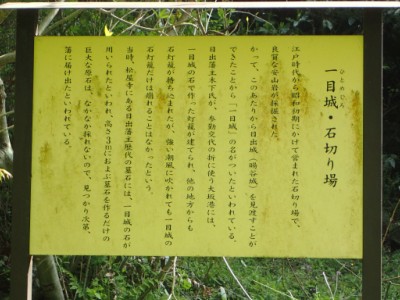 ひとめじろ
一目城・石切り場
江戸時代から昭和初期にかけて営まれた石切り場で、
良質な安山岩が採掘された。
かつて、このあたりから日出城（暘谷城）を見渡すことが
できたことから「一目城」の名がついたといわれている。
日出藩主木下氏が、参勤交代の折に使う大坂港には、
一目城の石で作った灯籠が建てられ、他の地方からも
石灯籠が持ち込まれたが、強い潮風に吹かれても一目城の
石灯籠だけは崩れることはなかったという。
当時、松屋寺にある日出藩主歴代の墓石には、一目城の石が
用いられたといわれ、高さ3mにおよぶ墓石を作るだけの
巨大な原石は、なかなか採れないので、見つかり次第、
藩に届け出たといわれている。